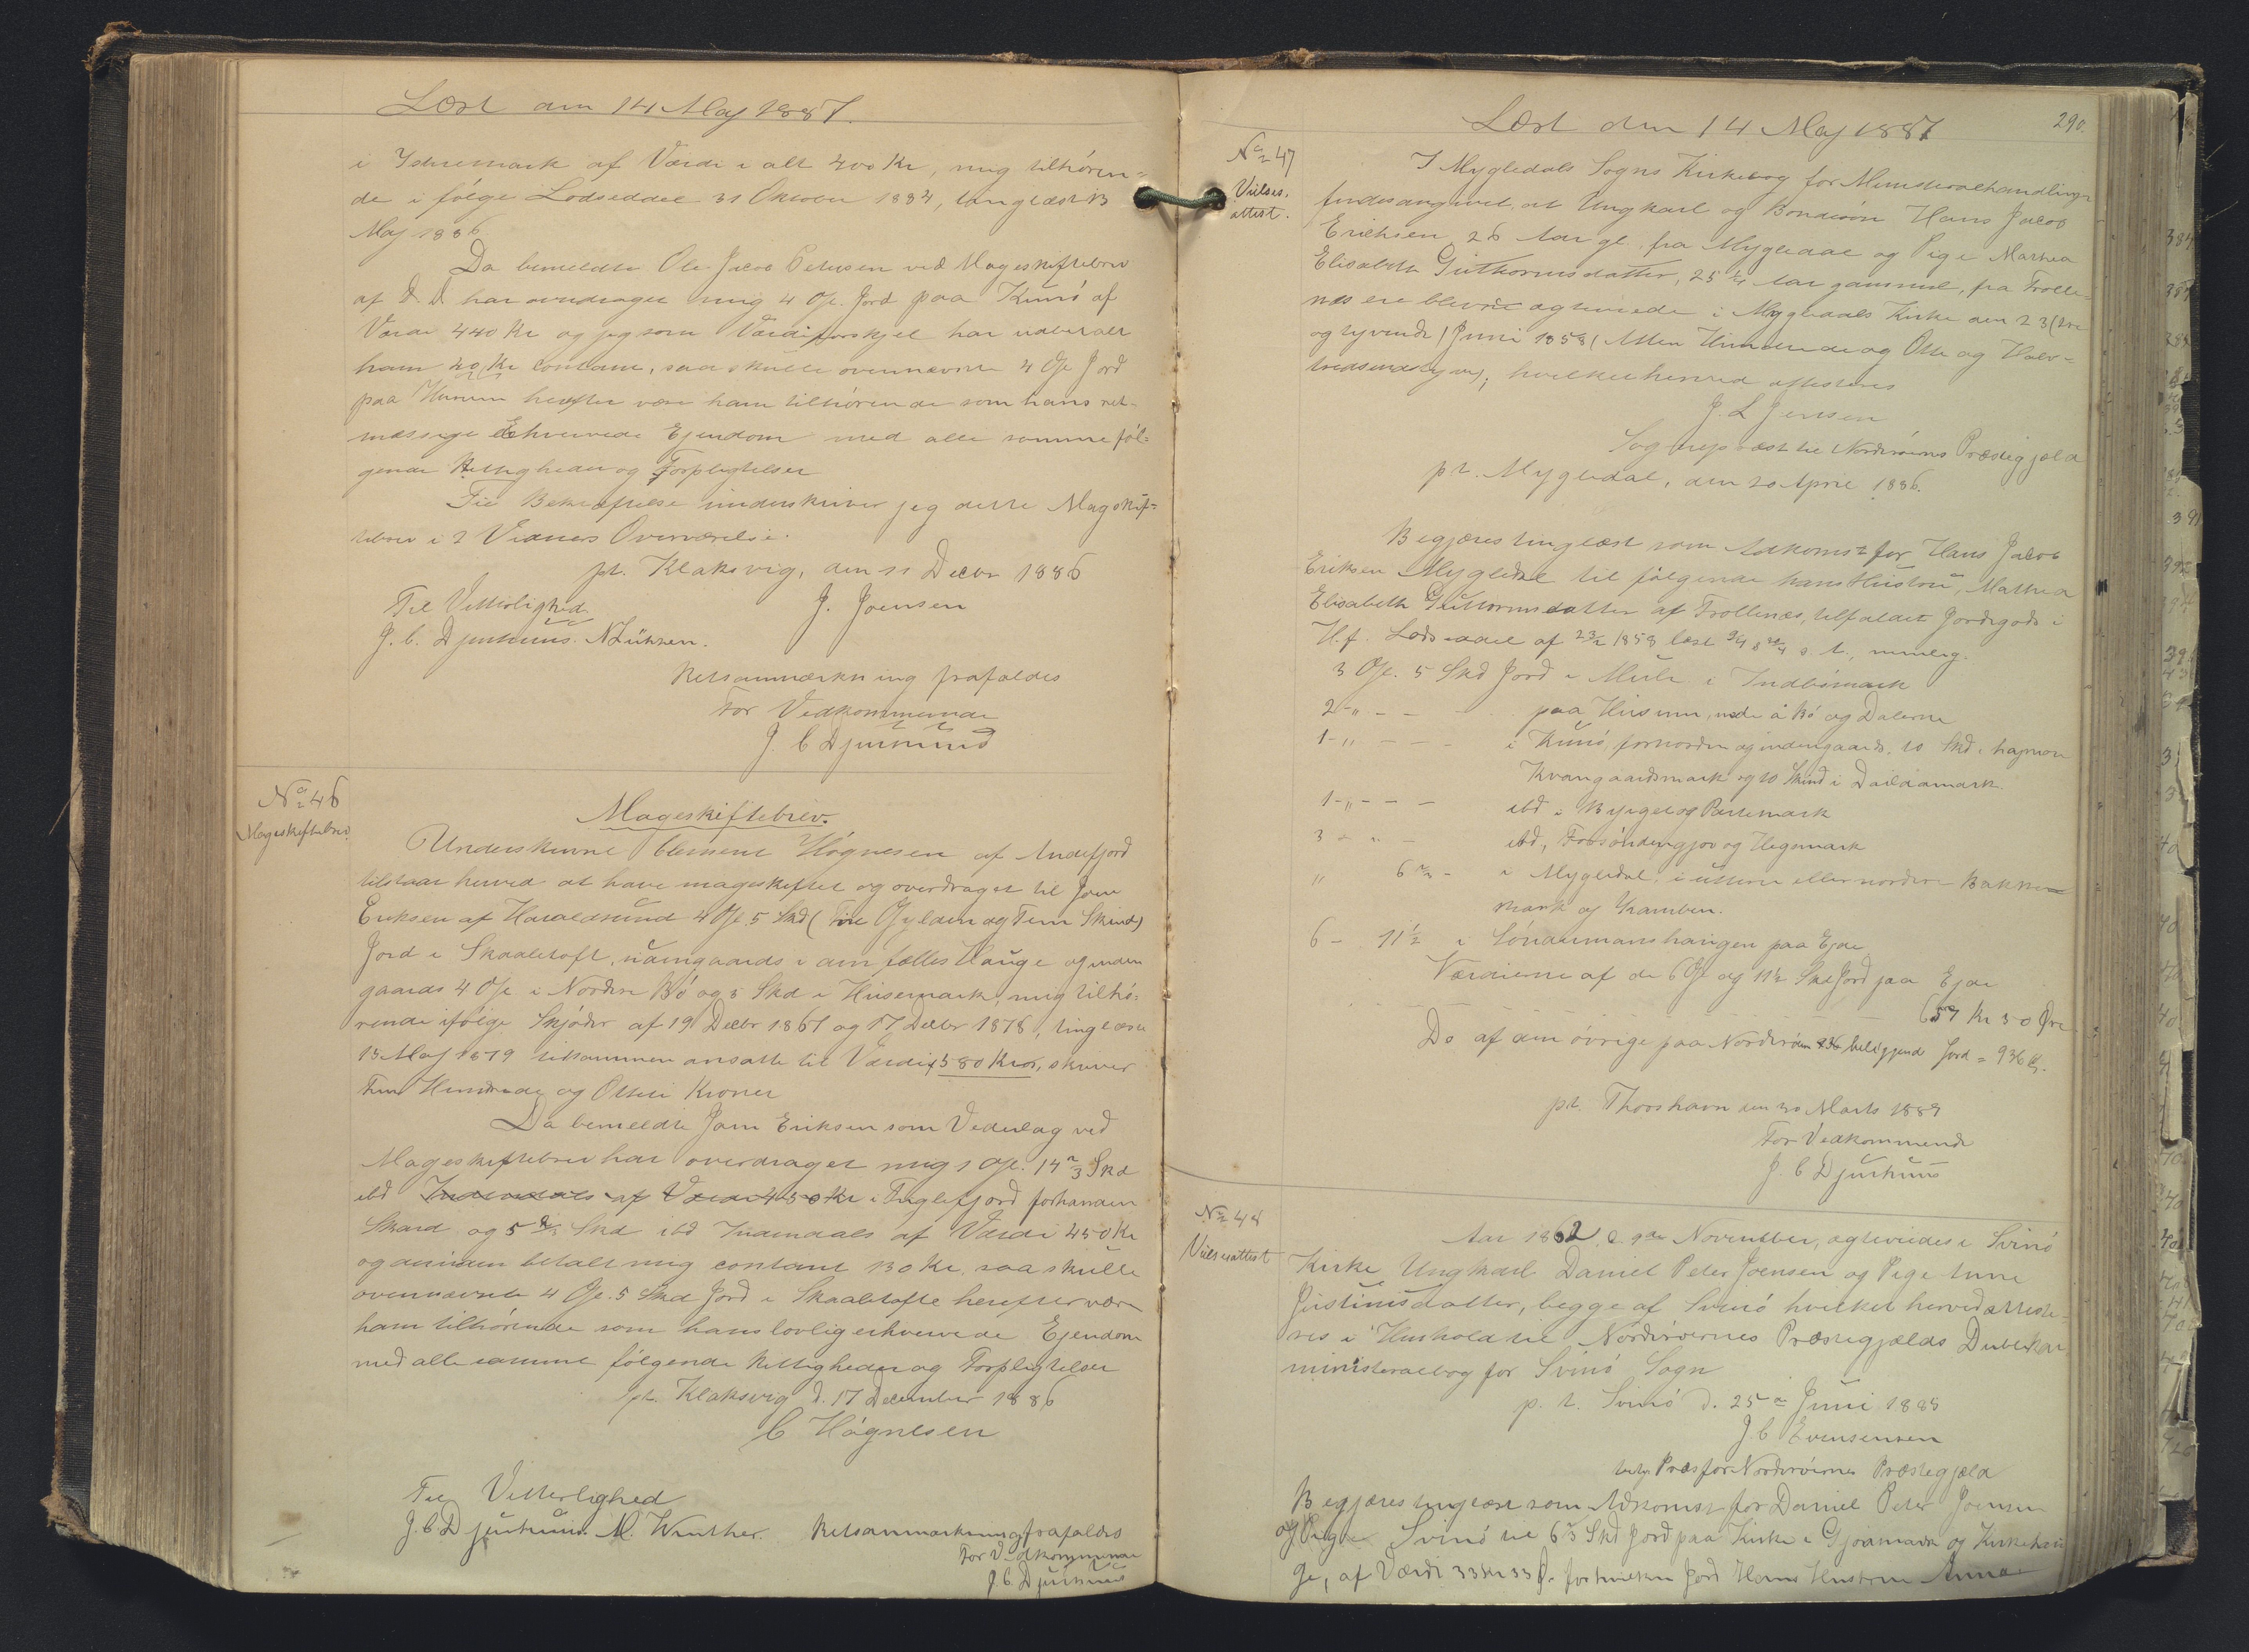 Læst den 14 Maj 1887.
i Ydremark af Værdi i alt 400 Kr, mig tilhören-
de i fölge Lodseddel 31 Oktober 1884, tinglæst 13
Maj 1886
Da bemeldte Ole Jacob Petersen ved Mageskiftebrev
af D. D. har overdraget mig 4 Gl. Jord paa Kunö af
Værdi 440 Kr og jeg som Værdiforskjel har udbetalt
ham 40 Kr contant, saa skulle ovennævnte 4 Gl Jord
paa Husum herefter være ham tilhörende som hans ret-
mæssige Erhvervede Ejendom med alle samme föl-
gende Rettigheder og Forpligtelser
Til Bekræftelse underskriver jeg dette Mageskif-
tebrev i 2 Vidners Overværelse.
pt. Klaksvig, den 11 Decbr 1886
Til Vitterlighed J. Joensen
J. C. Djurhuus. N Lützen.
Retsanmærkning frafaldes
For Vedkommende
J. C Djurhuus
No 46
Mageskiftebrev.
Mageskiftebrev.
Underskrevne Clement Högnesen af Andefjord
tilstaar herved at have mageskiftet og overdraget til Joen
Eriksen af Haraldsund 4 Gl. 5 Skd (Fire Gylden og Fem Skind)
Jord i Skaaletoft, udengaards i den fælles Hauge og inden
gaards 4 Gl i Nordre Bö og 5 Skd i Husemark, mig tilhö-
rende ifölge Skjöder af 19 Decbr 1867 og 17 Decbr 1878, tinglæste
13 Maj 1879 tilsammen ansatte til Værdi 580 Kror, skriver
Fem Hundrede og Otteti Kroner
Da bemeldte Joen Eriksen som Vederlag ved
Mageskiftebrev har overdraget mig 1 Gl. 14 2/3 Skd
ibd Indendals af Værdi 450 Kr i Fuglefjord forhanden
Skard og 5 2/3 Skd ibd Indendals af Værdi 450 Kr
og desuden betalt mig contant 130 Kr. saa skulle
ovennævnte 4 Gl. 5 Skd Jord i Skaaletofte herefter være
ham tilhörende som hans lovlig erhvervede Ejendom
med alle samme fölgende Rettigheder og Forpligtelser
pt. Klaksvig d. 17 December 1886
C Högnesen
Til Vitterlighed
J. C Djurhuus. M. Winther. Retsanmærkning frafaldes
For Vedkommende
J. C. Djurhuus
Læst den 14 Maj 1887
290.
No 47
Vielses-
attest.
I Mygledals Sogns Kirkebog for Ministerialhandlinger
findes angivet, at Ungkarl og Bondesön Hans Jacob
Erichsen, 26 Aar gl. fra Mygledal og Pige Mathea
Elisabeth Guthormsdatter, 25 1/4 Aar gammel, fra Trolle-
næs ere blevne ægteviede i Mygledals Kirke den 23 (tre
og tyvende) Juni 1858 (Atten Hundrede og Otte og Halv-
tredsindstyve), hvilket herved attesteres
J. L Jensen
Sognepræst til Norderöernes Prædigjæld
pt. Mygledal, den 20 April 1886.
Begjæres tinglæst som Adkomst for Hans Jacob
Eriksen Mygledal til fölgende hans Hustru, Mathea
Elisabeth Guttormsdatter af Trollenæs, tilfaldet Jordegods i
H.f. Lodseddel af 23/2 1858 læst 9/4 & 30/4 s. A., nemlig:
3 Gl. 5 Skd Jord i Mule i Indbömark
2 - " - - paa Husum, nede á Bö og Dalerne
1 - " - - - i Kunö, fornorden og indengaards, 10 Skd i
Kvangaardsmark og 10 Skind i
1 - " - - - ibd i Byrgel og
3 - " - ibd, og
" 6 2/3 - i Mygledal, i uttere eller nordre Bakke-
mark og
6 - 11 1/2 i paa Ejde
Værdierne af de 6 Gl og 11 1/2 Skd Jord paa Ejde
657 Kr 50 Öre
Do af den övrige paa Norderöerne beliggende Jord = 936 Kr.
pt. Thorshavn den 30 Marts 1887
For Vedkommende
J. C Djurhuus
No 48
Vielsesattest
Aar 1862 d. 9de November, ægteviedes i Svinö
Kirke Ungkarl Daniel Peter Joensen og Pige Anne
Justinusdatter, begge af Svinö hvilket herved atteste-
res i Henhold til Norderöernes Præstegjælds Dublikat
ministerialbog for Svinö Sogn
p. t. Svinö d. 25de Juni 1885
J. C Evensensen
Præst for Norderöernes Præstegjæld
Begjæres tinglæst som Adkomst for Daniel Peter Joensen
Svinö til 6 2/3 Skd Jord paa Kirke i og Kirkehau
ge, af Værdi 33 Kr 33 Ö. for hvilken Jord Hans Hustru Anna